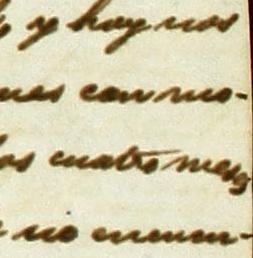 y hay nos
nes con mo-
os cuatro meses
no encuen-